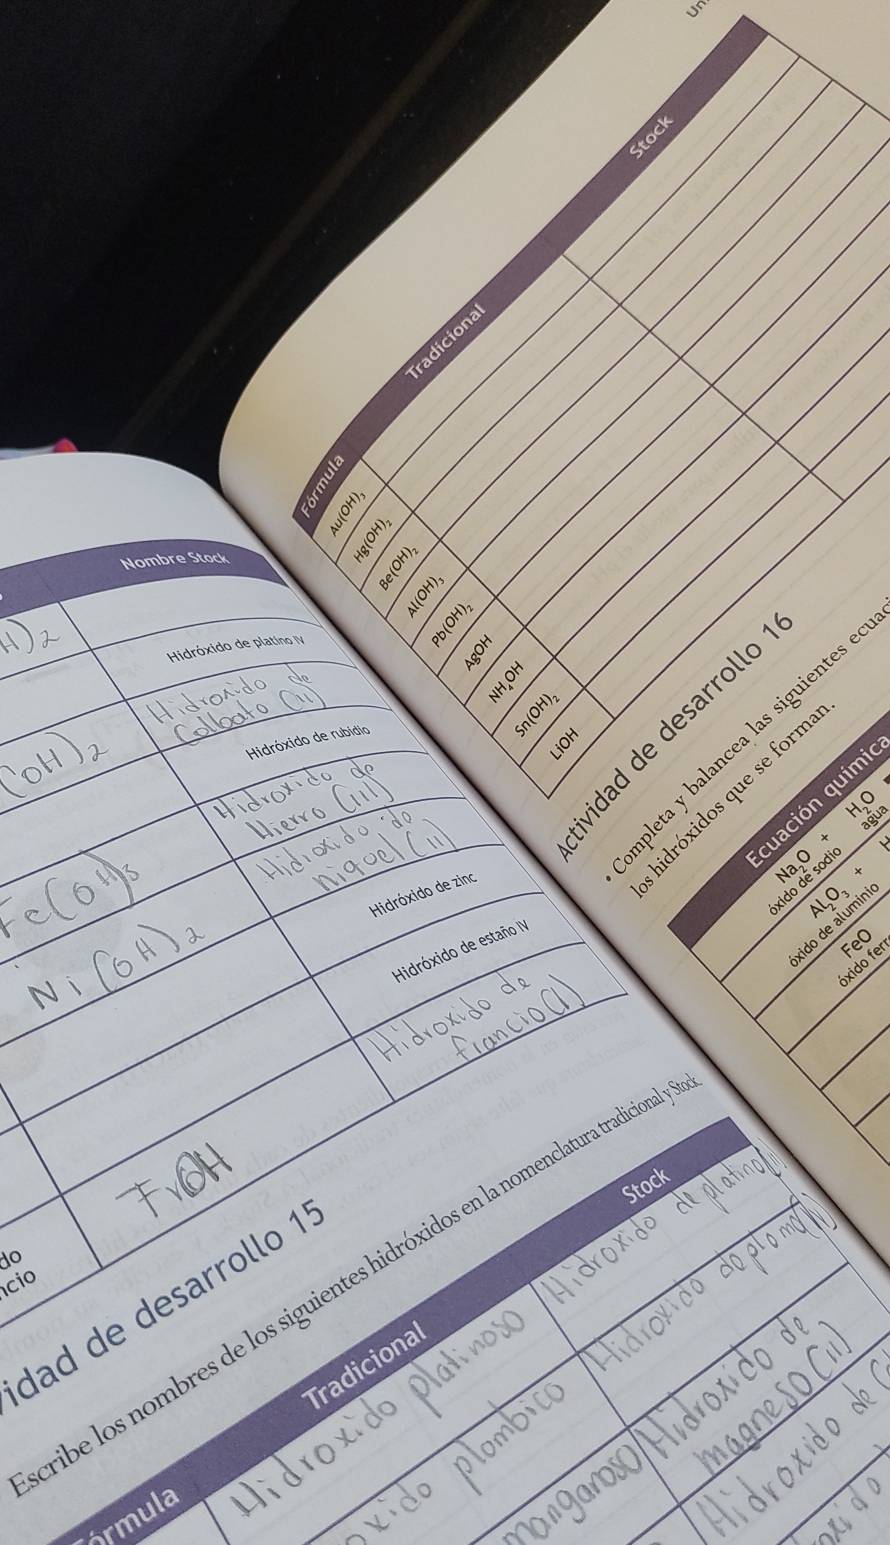 Nombre Stock
H)2
Hidróxido de platino IV
Hidroxido de
Colbato (11)
(OH)2
Hidróxido de rubidio
Hidroxido de
Hierro (111)
Fe(OH)3
Hidroxido de
niquel (11)
Ni(OH)2
Hidróxido de zinc
Hidróxido de estaño IV
Hidroxido de
francio(1)
FrOH
do
ncio
idad de desarrollo 15
Escribe los nombres de los siguientes hidróxidos en la nomenclatura tradicional y Stock.
órmula
Tradicional
Stock
Hidroxido platinoso
Hidroxido de platino(11)
oxido plombico
Hidroxido do plomo(IV)
manganoso
Hidroxido de
magneso (11)
Hidroxido de
oxido
Un
Fórmula
Tradicional
Stock
Au(OH)₃
Hg(OH)₂
Be(OH)₂
Al(OH)₃
Pb(OH)₂
AgOH
NH₄OH
Sn(OH)₂
LiOH
Actividad de desarrollo 16
• Completa y balancea las siguientes ecuaci
los hidróxidos que se forman.
Ecuación química
Na₂O + H₂O
óxido de sodio agua
AL₂O₃ + H
óxido de aluminio
FeO
óxido ferr